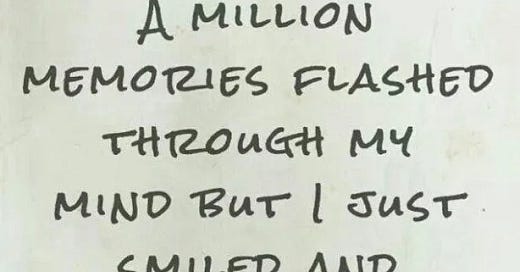 A MILLION
MEMORIES FLASHED
THROUGH MY
MIND BUT I JUST
SMILED AND